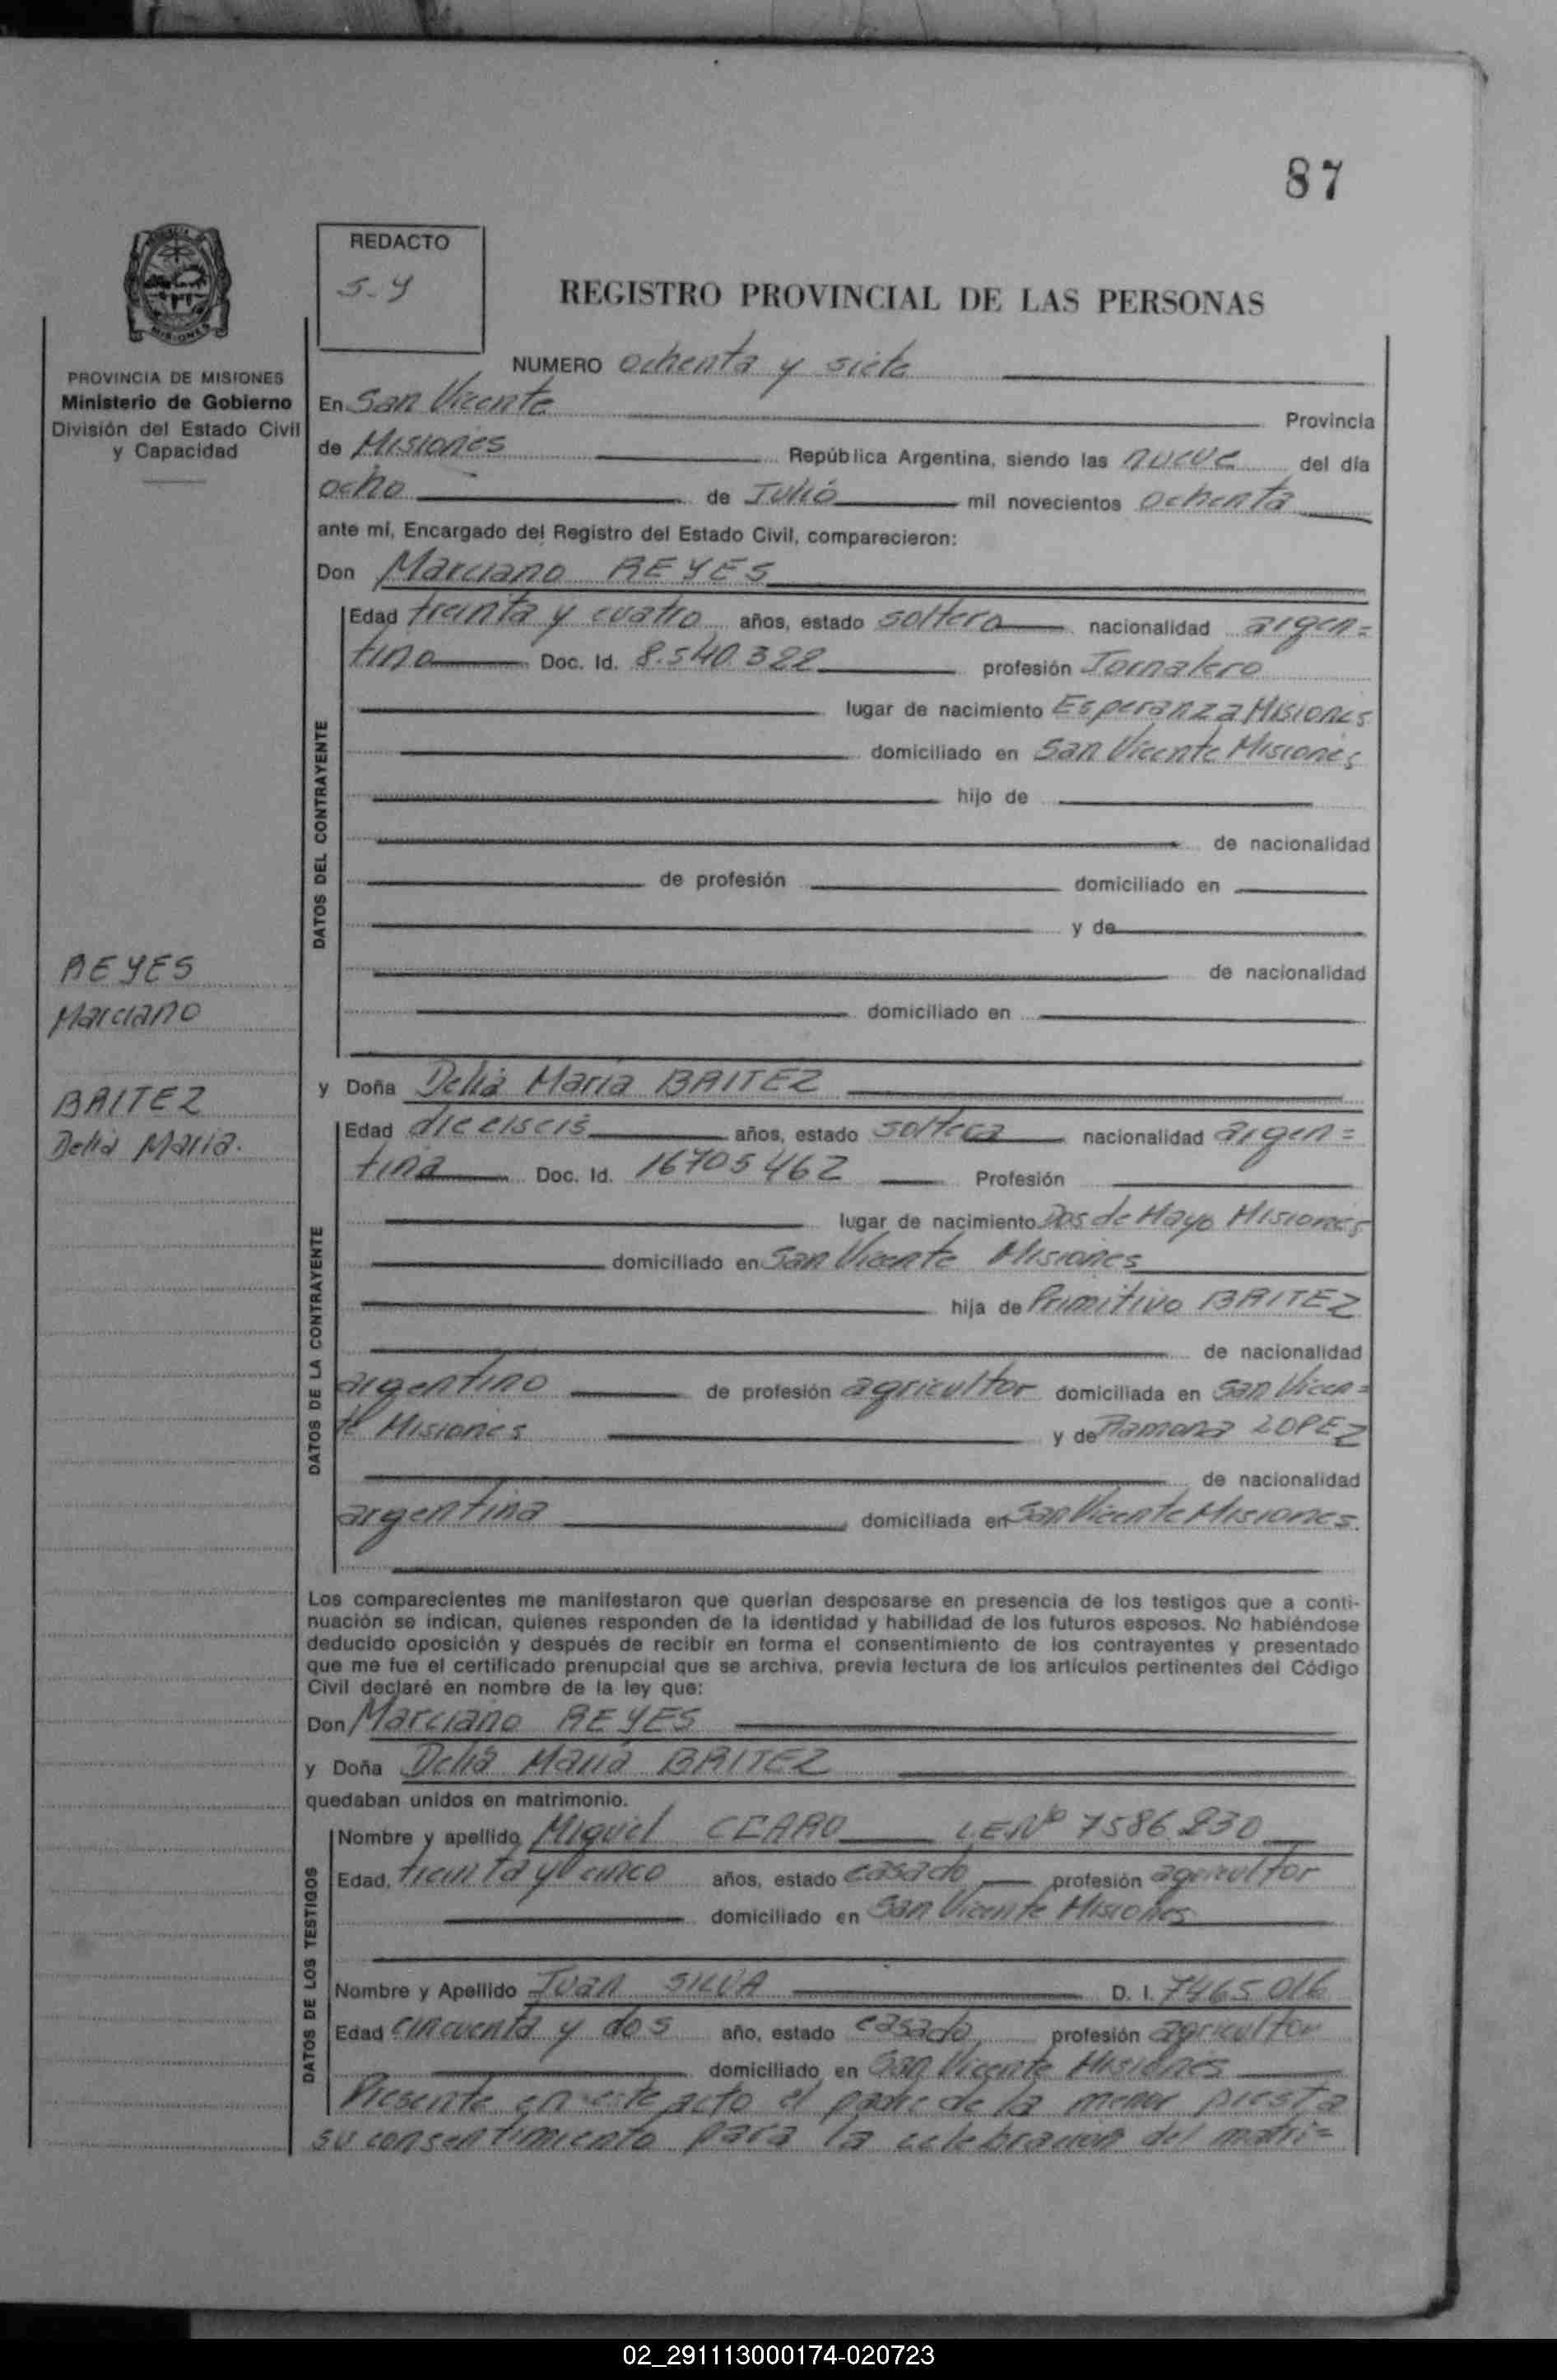 87
REDACTO
S-Y
REGISTRO PROVINCIAL DE LAS PERSONAS
MISIONES
PROVINCIA DE MISIONES
Ministerio de Gobierno
División del Estado Civil
y Capacidad
NUMERO ochenta y siete
En San Vicente Provincia
de Misiones República Argentina, siendo las nueve del día
ocho de Julio mil novecientos ochenta
ante mí, Encargado del Registro del Estado Civil, comparecieron:
Don Marciano REYES
DATOS DEL CONTRAYENTE
Edad treinta y cuatro años, estado soltero nacionalidad argen=
tino Doc. Id. 8.540.322 profesión Jornalero
lugar de nacimiento Esperanza Misiones
domiciliado en San Vicente Misiones
hijo de
de nacionalidad
de profesión domiciliado en
y de
de nacionalidad
domiciliado en
REYES
Marciano
BRITEZ
Delia Maria.
y Doña Delia Maria BRITEZ
DATOS DE LA CONTRAYENTE
Edad dieciseis años, estado soltera nacionalidad argen=
tina Doc. Id. 16705462 Profesión
lugar de nacimiento Dos de Mayo Misiones
domiciliado en San Vicente Misiones
hija de Primitivo BRITEZ
de nacionalidad
argentino de profesión agricultor domiciliada en San Vicen=
te Misiones y de Ramona LOPEZ
de nacionalidad
argentina domiciliada en San Vicente Misiones.
Los comparecientes me manifestaron que querían desposarse en presencia de los testigos que a conti-
nuación se indican, quienes responden de la identidad y habilidad de los futuros esposos. No habiéndose
deducido oposición y después de recibir en forma el consentimiento de los contrayentes y presentado
que me fue el certificado prenupcial que se archiva, previa lectura de los artículos pertinentes del Código
Civil declaré en nombre de la ley que:
Don Marciano REYES
y Doña Delia Maria BRITEZ
quedaban unidos en matrimonio.
DATOS DE LOS TESTIGOS
Nombre y apellido Miguel CLARO LE Nº 7586830
Edad, treinta y cinco años, estado casado profesión agricultor
domiciliado en San Vicente Misiones
Nombre y Apellido Juan SILVA D. I. 7465016
Edad cincuenta y dos año, estado casado profesión agricultor
domiciliado en San Vicente Misiones
Presente en este acto el padre de la menor presta
su consentimiento para la celebracion del matri=
02_291113000174-020723